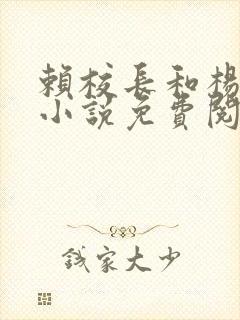 賴校長和楊
小說免費閱
錢家大少